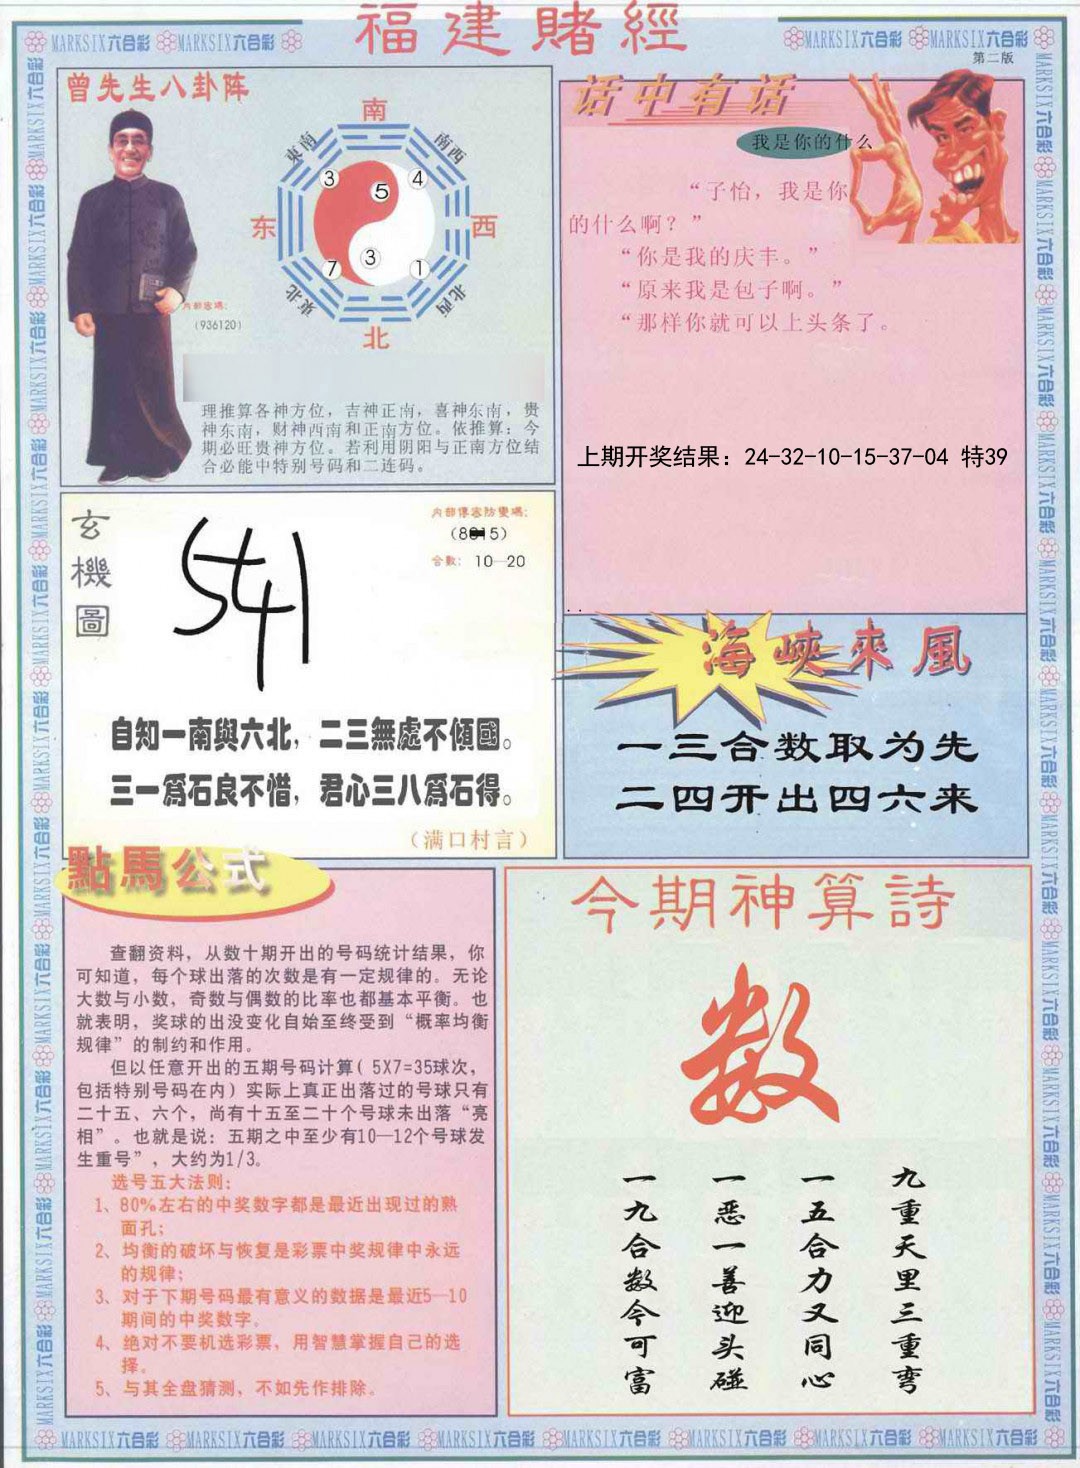 福建賭經
MARKSIX六合彩 MARKSIX六合彩
MARKSIX六合彩 MARKSIX六合彩
第二版
曾先生八卦阵
南
東南
南西
3
5
4
东
西
7
3
1
東北
北西
北
内部密碼:
(936120)
理推算各神方位，吉神正南，喜神东南，贵
神东南，财神西南和正南方位。依推算：今
期必旺贵神方位。若利用阴阳与正南方位结
合必能中特别号码和二连码。
话中有话
我是你的什么
“子怡，我是你
的什么啊？”
“你是我的庆丰。”
“原来我是包子啊。”
“那样你就可以上头条了。
上期开奖结果：24-32-10-15-37-04 特39
玄機圖
541
内部傳密防變碼:
合數: 10—20
自知一南與六北，二三無處不傾國。
三一爲石良不惜，君心三八爲石得。
（满口村言）
海峽來風
一三合数取为先
二四开出四六来
點馬公式
查翻资料，从数十期开出的号码统计结果，你
可知道，每个球出落的次数是有一定规律的。无论
大数与小数，奇数与偶数的比率也都基本平衡。也
就表明，奖球的出没变化自始至终受到“概率均衡
规律”的制约和作用。
但以任意开出的五期号码计算( 5X7=35球次，
包括特别号码在内）实际上真正出落过的号球只有
二十五、六个，尚有十五至二十个号球未出落“亮
相”。也就是说：五期之中至少有10—12个号球发
生重号”，大约为1/3。
选号五大法则：
1、80%左右的中奖数字都是最近出现过的熟
面孔；
2、均衡的破坏与恢复是彩票中奖规律中永远
的规律；
3、对于下期号码最有意义的数据是最近5—10
期间的中奖数字。
4、绝对不要机选彩票，用智慧掌握自己的选
择。
5、与其全盘猜测，不如先作排除。
今期神算詩
数
九重天里三重弯
一五合力又同心
一恶一善迎头碰
一九合数今可富
MARKSIX六合彩 MARKSIX六合彩 MARKSIX六合彩 MARKSIX六合彩 MARKSIX六合彩 MARKSIX六合彩 MARKSIX六合彩 MARKSIX六合彩